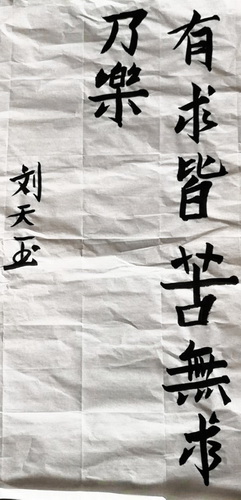 有求皆苦無求
乃樂
刘天玉